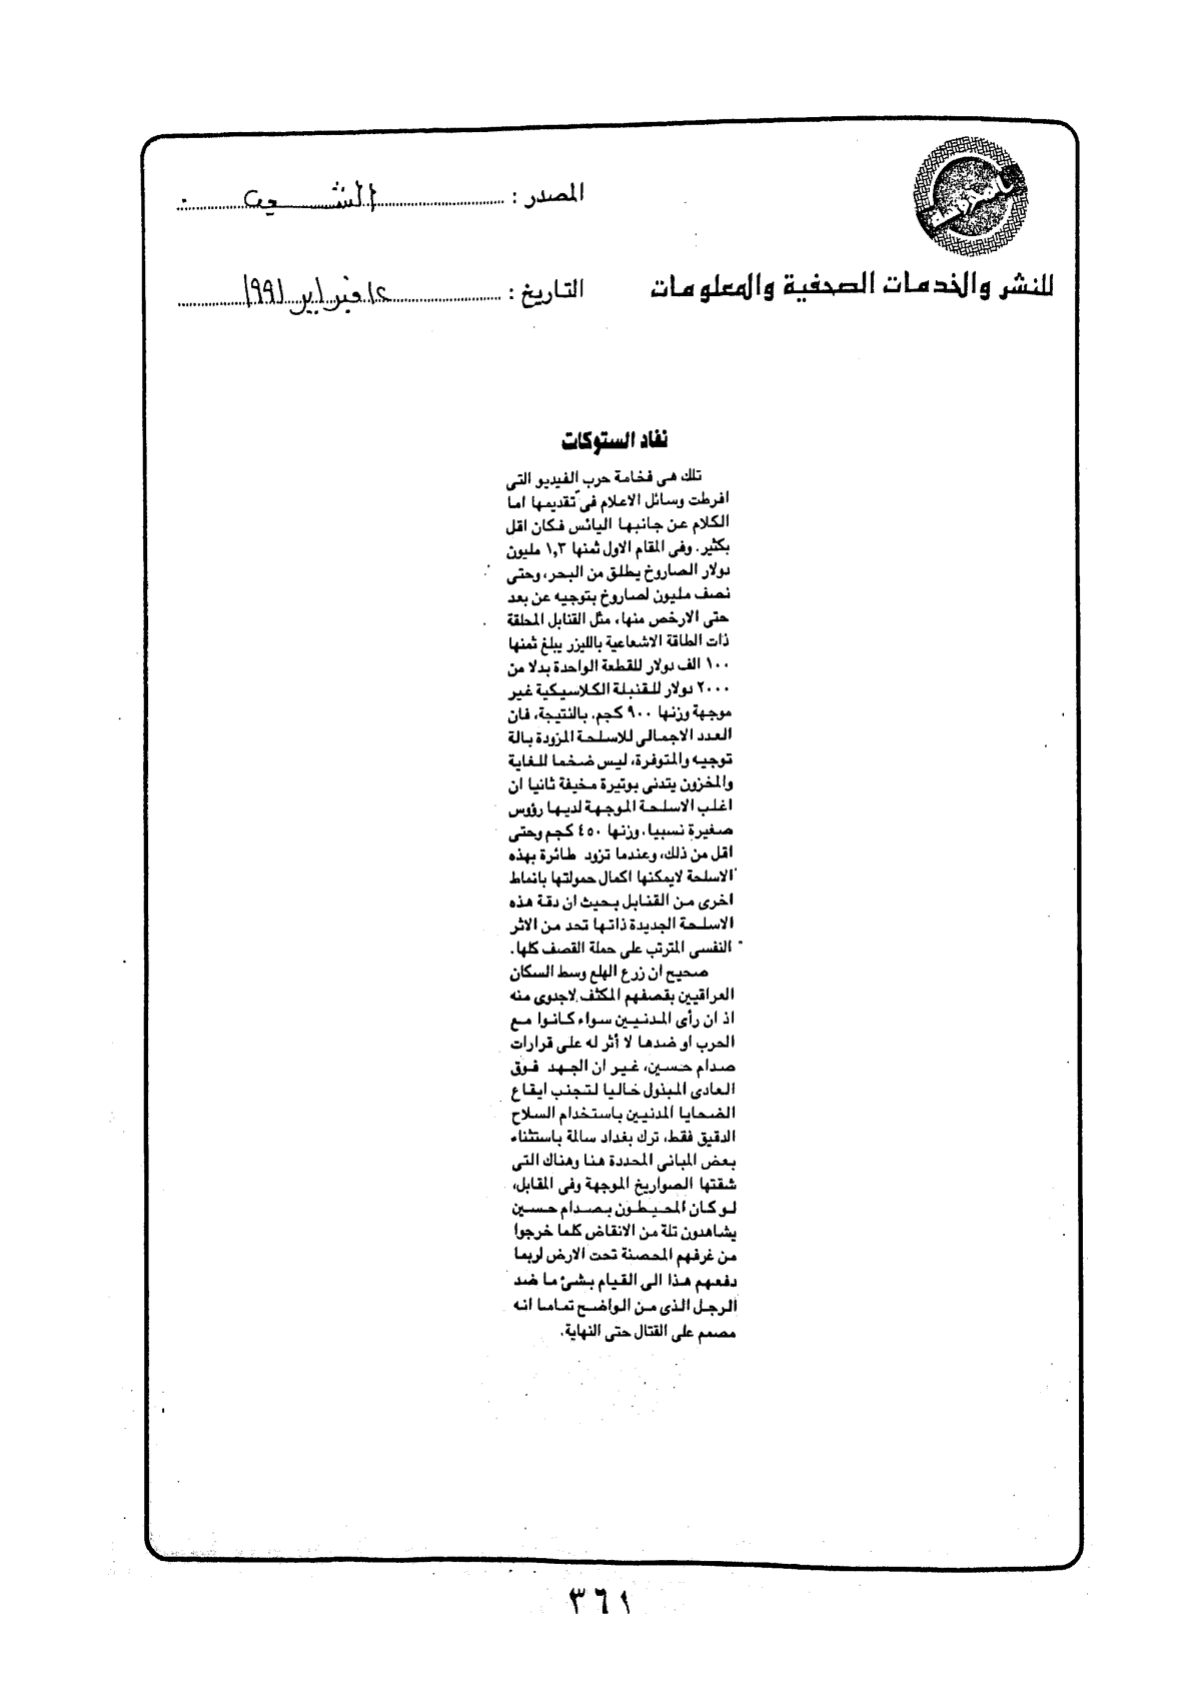 المصدر : الشعب
للنشر والخدمات الصحفية والمعلومات
التاريخ : ١٢ فبراير ١٩٩١
نفاد الستوكات
تلك هى فخامة حرب الفيديو التى
افرطت وسائل الاعلام فى تقديمها اما
الكلام عن جانبها اليائس فكان اقل
بكثير. وفى المقام الاول ثمنها ١,٣ مليون
دولار الصاروخ يطلق من البحر، وحتى
نصف مليون لصاروخ بتوجيه عن بعد
حتى الارخص منها، مثل القنابل المحلقة
ذات الطاقة الاشعاعية بالليزر يبلغ ثمنها
١٠٠ الف دولار للقطعة الواحدة بدلا من
٢٠٠٠ دولار للقنبلة الكلاسيكية غير
موجهة وزنها ٩٠٠ كجم. بالنتيجة، فان
العدد الاجمالى للاسلحة المزودة بالة
توجيه والمتوفرة، ليس ضخما للغاية
والمخزون يتدنى بوتيرة مخيفة ثانيا ان
اغلب الاسلحة الموجهة لديها رؤوس
صغيرة نسبيا، وزنها ٤٥٠ كجم وحتى
اقل من ذلك، وعندما تزود طائرة بهذه
الاسلحة لايمكنها اكمال حمولتها بانماط
اخرى من القنابل بحيث ان دقة هذه
الاسلحة الجديدة ذاتها تحد من الاثر
النفسى المترتب على حملة القصف كلها.
صحيح ان زرع الهلع وسط السكان
العراقيين بقصفهم المكثف لاجدوى منه
اذ ان رأى المدنيين سواء كانوا مع
الحرب او ضدها لا أثر له على قرارات
صدام حسين، غير ان الجهد فوق
العادى المبذول حاليا لتجنب ايقاع
الضحايا المدنيين باستخدام السلاح
الدقيق فقط، ترك بغداد سالمة باستثناء
بعض المبانى المحددة هنا وهناك التى
شقتها الصواريخ الموجهة وفى المقابل،
لو كان المحيطون بصدام حسين
يشاهدون تلة من الانقاض كلما خرجوا
من غرفهم المحصنة تحت الارض لربما
دفعهم هذا الى القيام بشئ ما ضد
الرجل الذى من الواضح تماما انه
مصمم على القتال حتى النهاية.
٣٦١